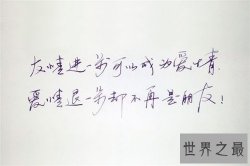 友情进一步可以成为爱情.
爱情退一步却不再是朋友!
世界之最